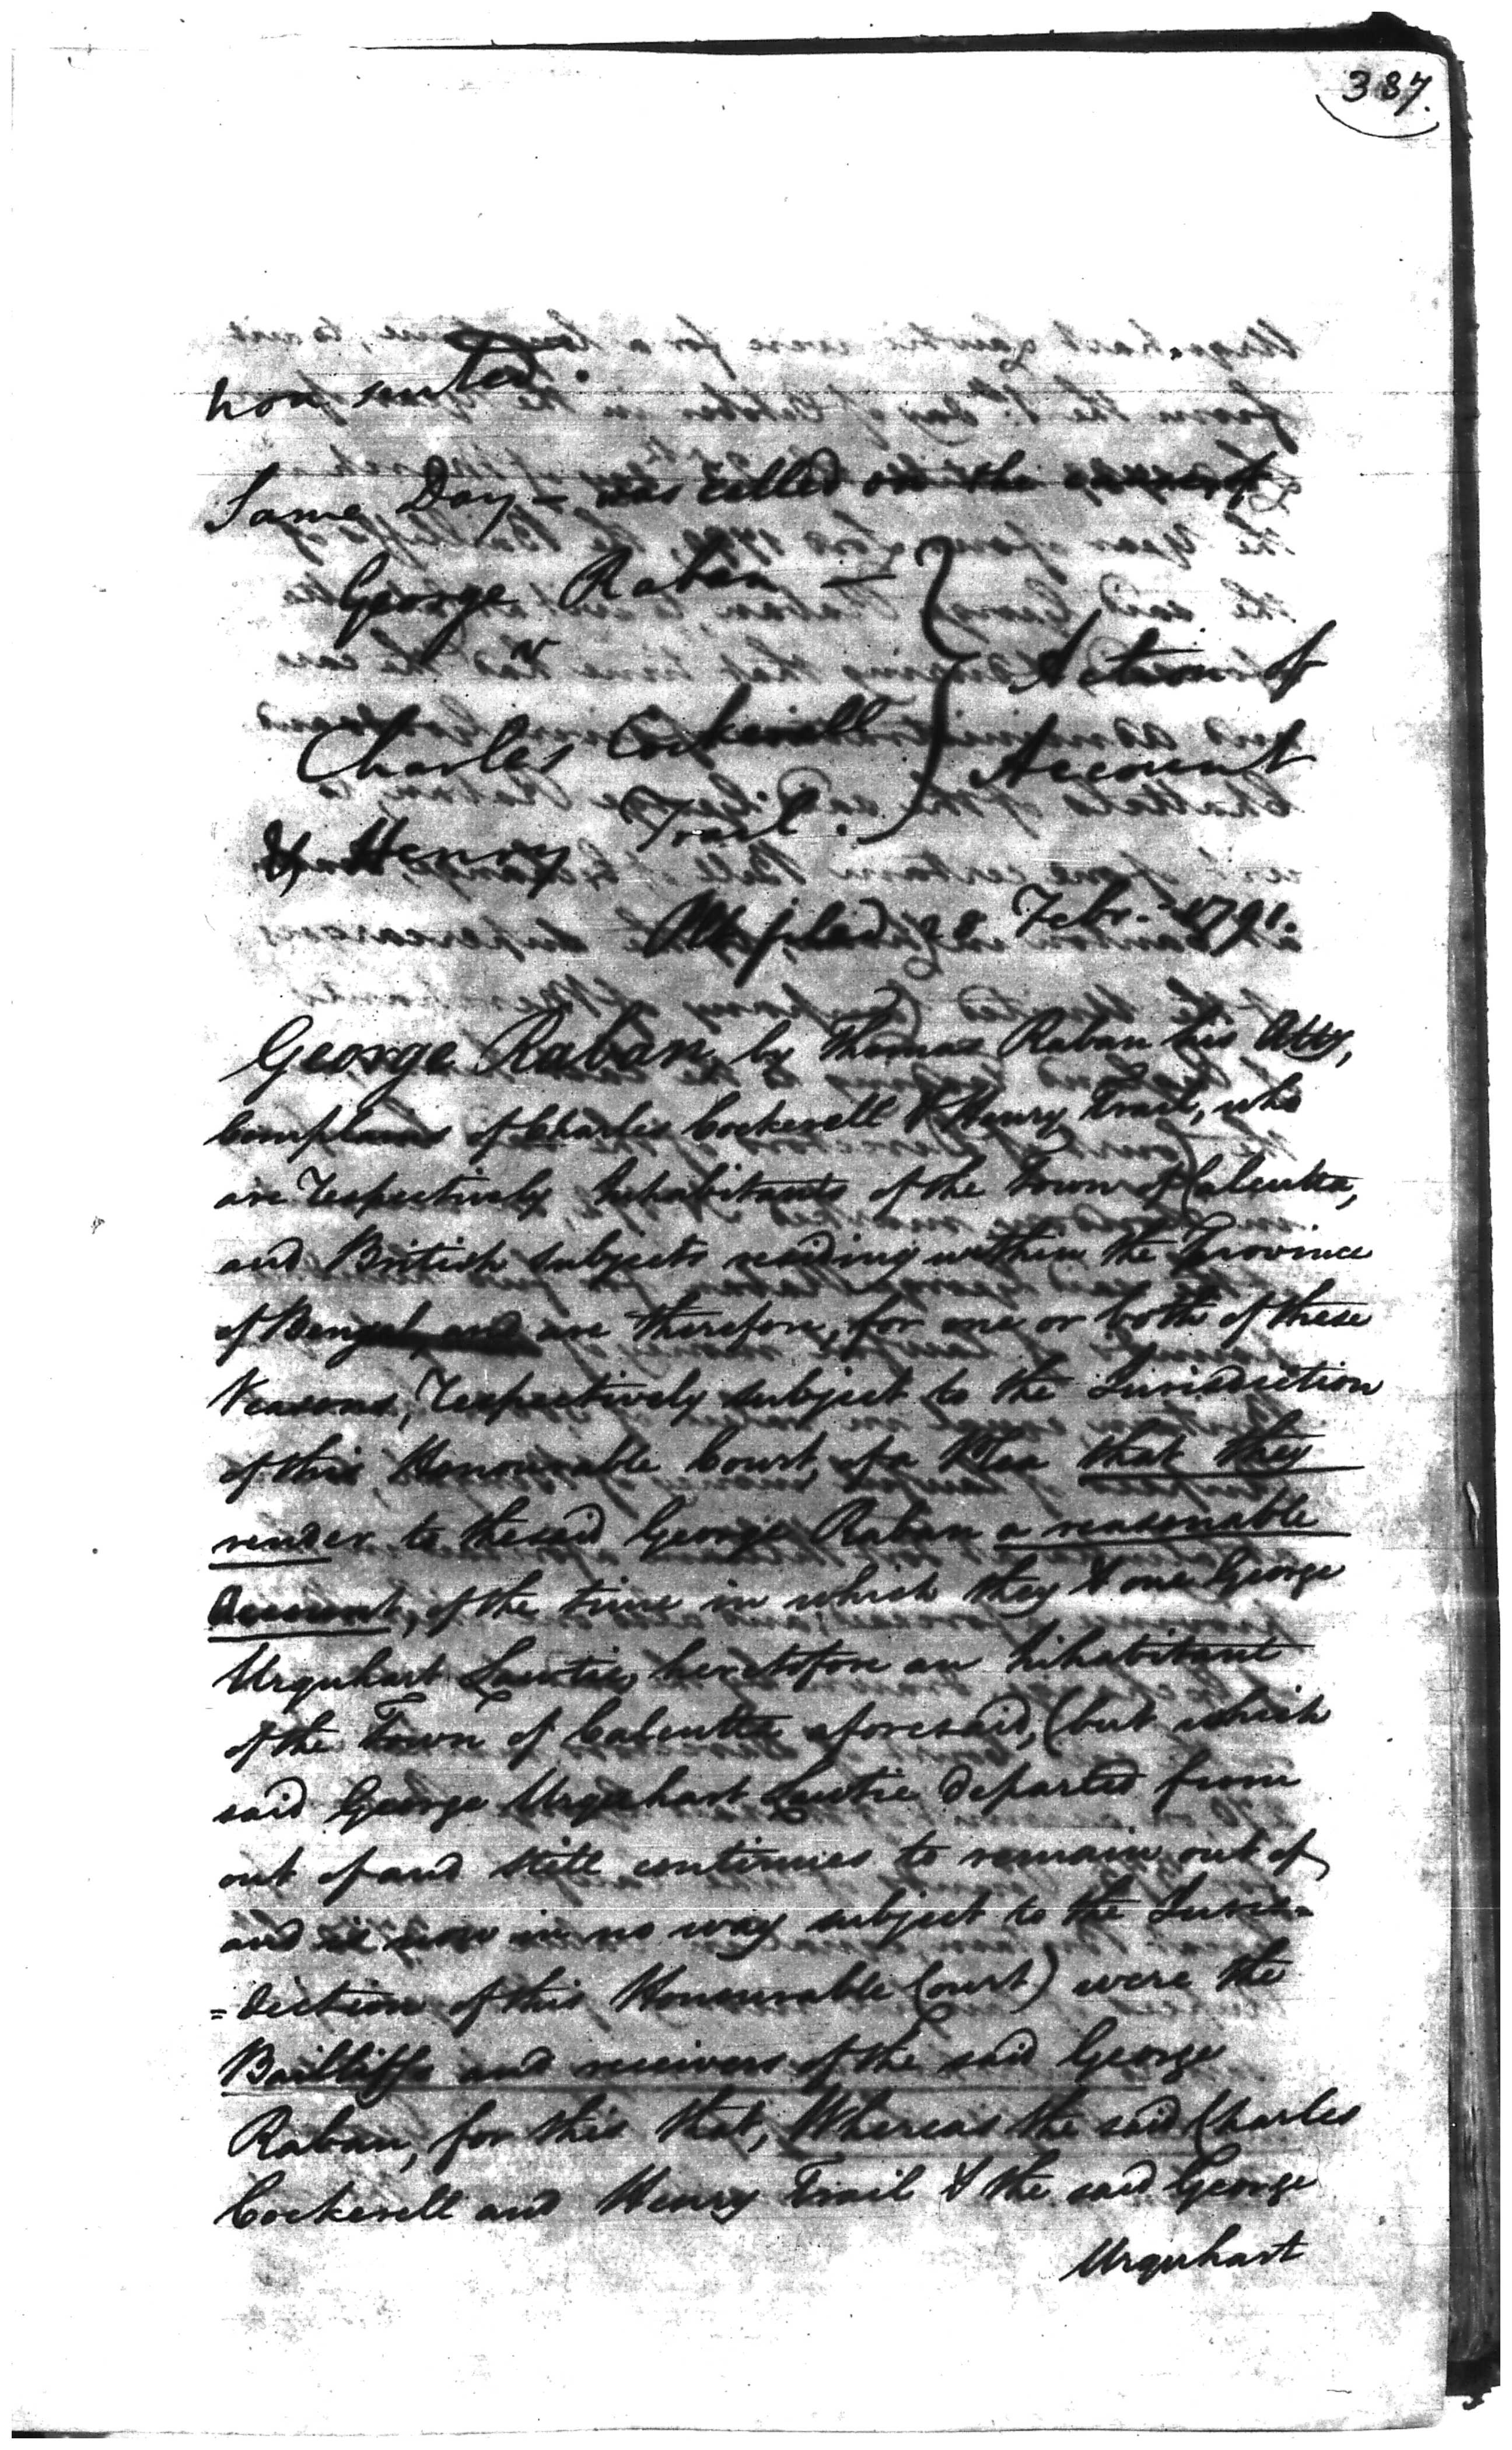 387.
non suited.
Same Day — was called on the cause of
George Raban —
v
Charles Cockerell
& Henry Trail.
Action of
Account
filed 28 Febr. 1791.
George Raban, by Thomas Raban his Atty,
Complains of Charles Cockerell & Henry Trail, who
are respectively Inhabitants of the Town of Calcutta,
and British subjects residing within the Province
of Bengal and are therefore, for one or both of these
reasons, respectively subject to the Jurisdiction
of this Honourable Court, of a Plea that they
render to the said George Raban a reasonable
Account, of the time in which they & one George
Urquhart Lawtie, heretofore an Inhabitant
of the Town of Calcutta aforesaid, (but which
said George Urquhart Lawtie departed from
out of and still continues to remain out of
and is now in no way subject to the Juris=
=diction of this Honourable Court) were the
Bailliffs and receivers of the said George
Raban, for this that, Whereas the said Charles
Cockerell and Henry Trail & the said George
Urquhart